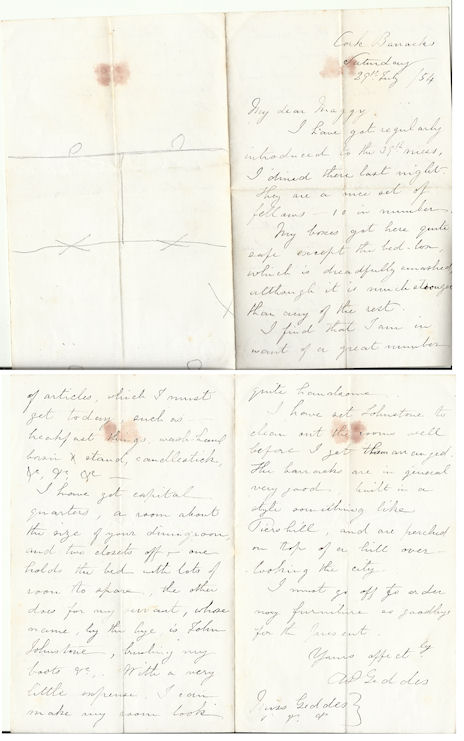 Cork Barracks
Saturday
29th July /54
My dear Maggy.
I have got regularly
introduced to the 29th mess,
I dined there last night.
They are a nice set of
fellows — 10 in number.
My boxes got here quite
safe except the bed-box,
which is dreadfully smashed
although it is much stronger
than any of the rest.
I find that I am in
want of a great number
of articles, which I must
get today such as
breakfast things, wash hand
basin & stand, candlestick,
&c, &c, &c —
I have got capital
quarters, a room about
the size of your diningroom,
and two closets off — one
holds the bed with lots of
room to spare, the other
does for my servant, whose
name, by the bye, is John
Johnstone, brushing my
boots &c,. With a very
little expense I can
make my room look
quite handsome.
I have set Johnstone to
clean out the rooms well
before I get them arranged.
The barracks are in general
very good. built in a
style something like
Piershill, and are perched
on top of a hill over-
looking the city.
I must go off to order
my furniture so goodbye
for the present.
Yours affectly
AD Geddes
Miss Geddes
&c &c